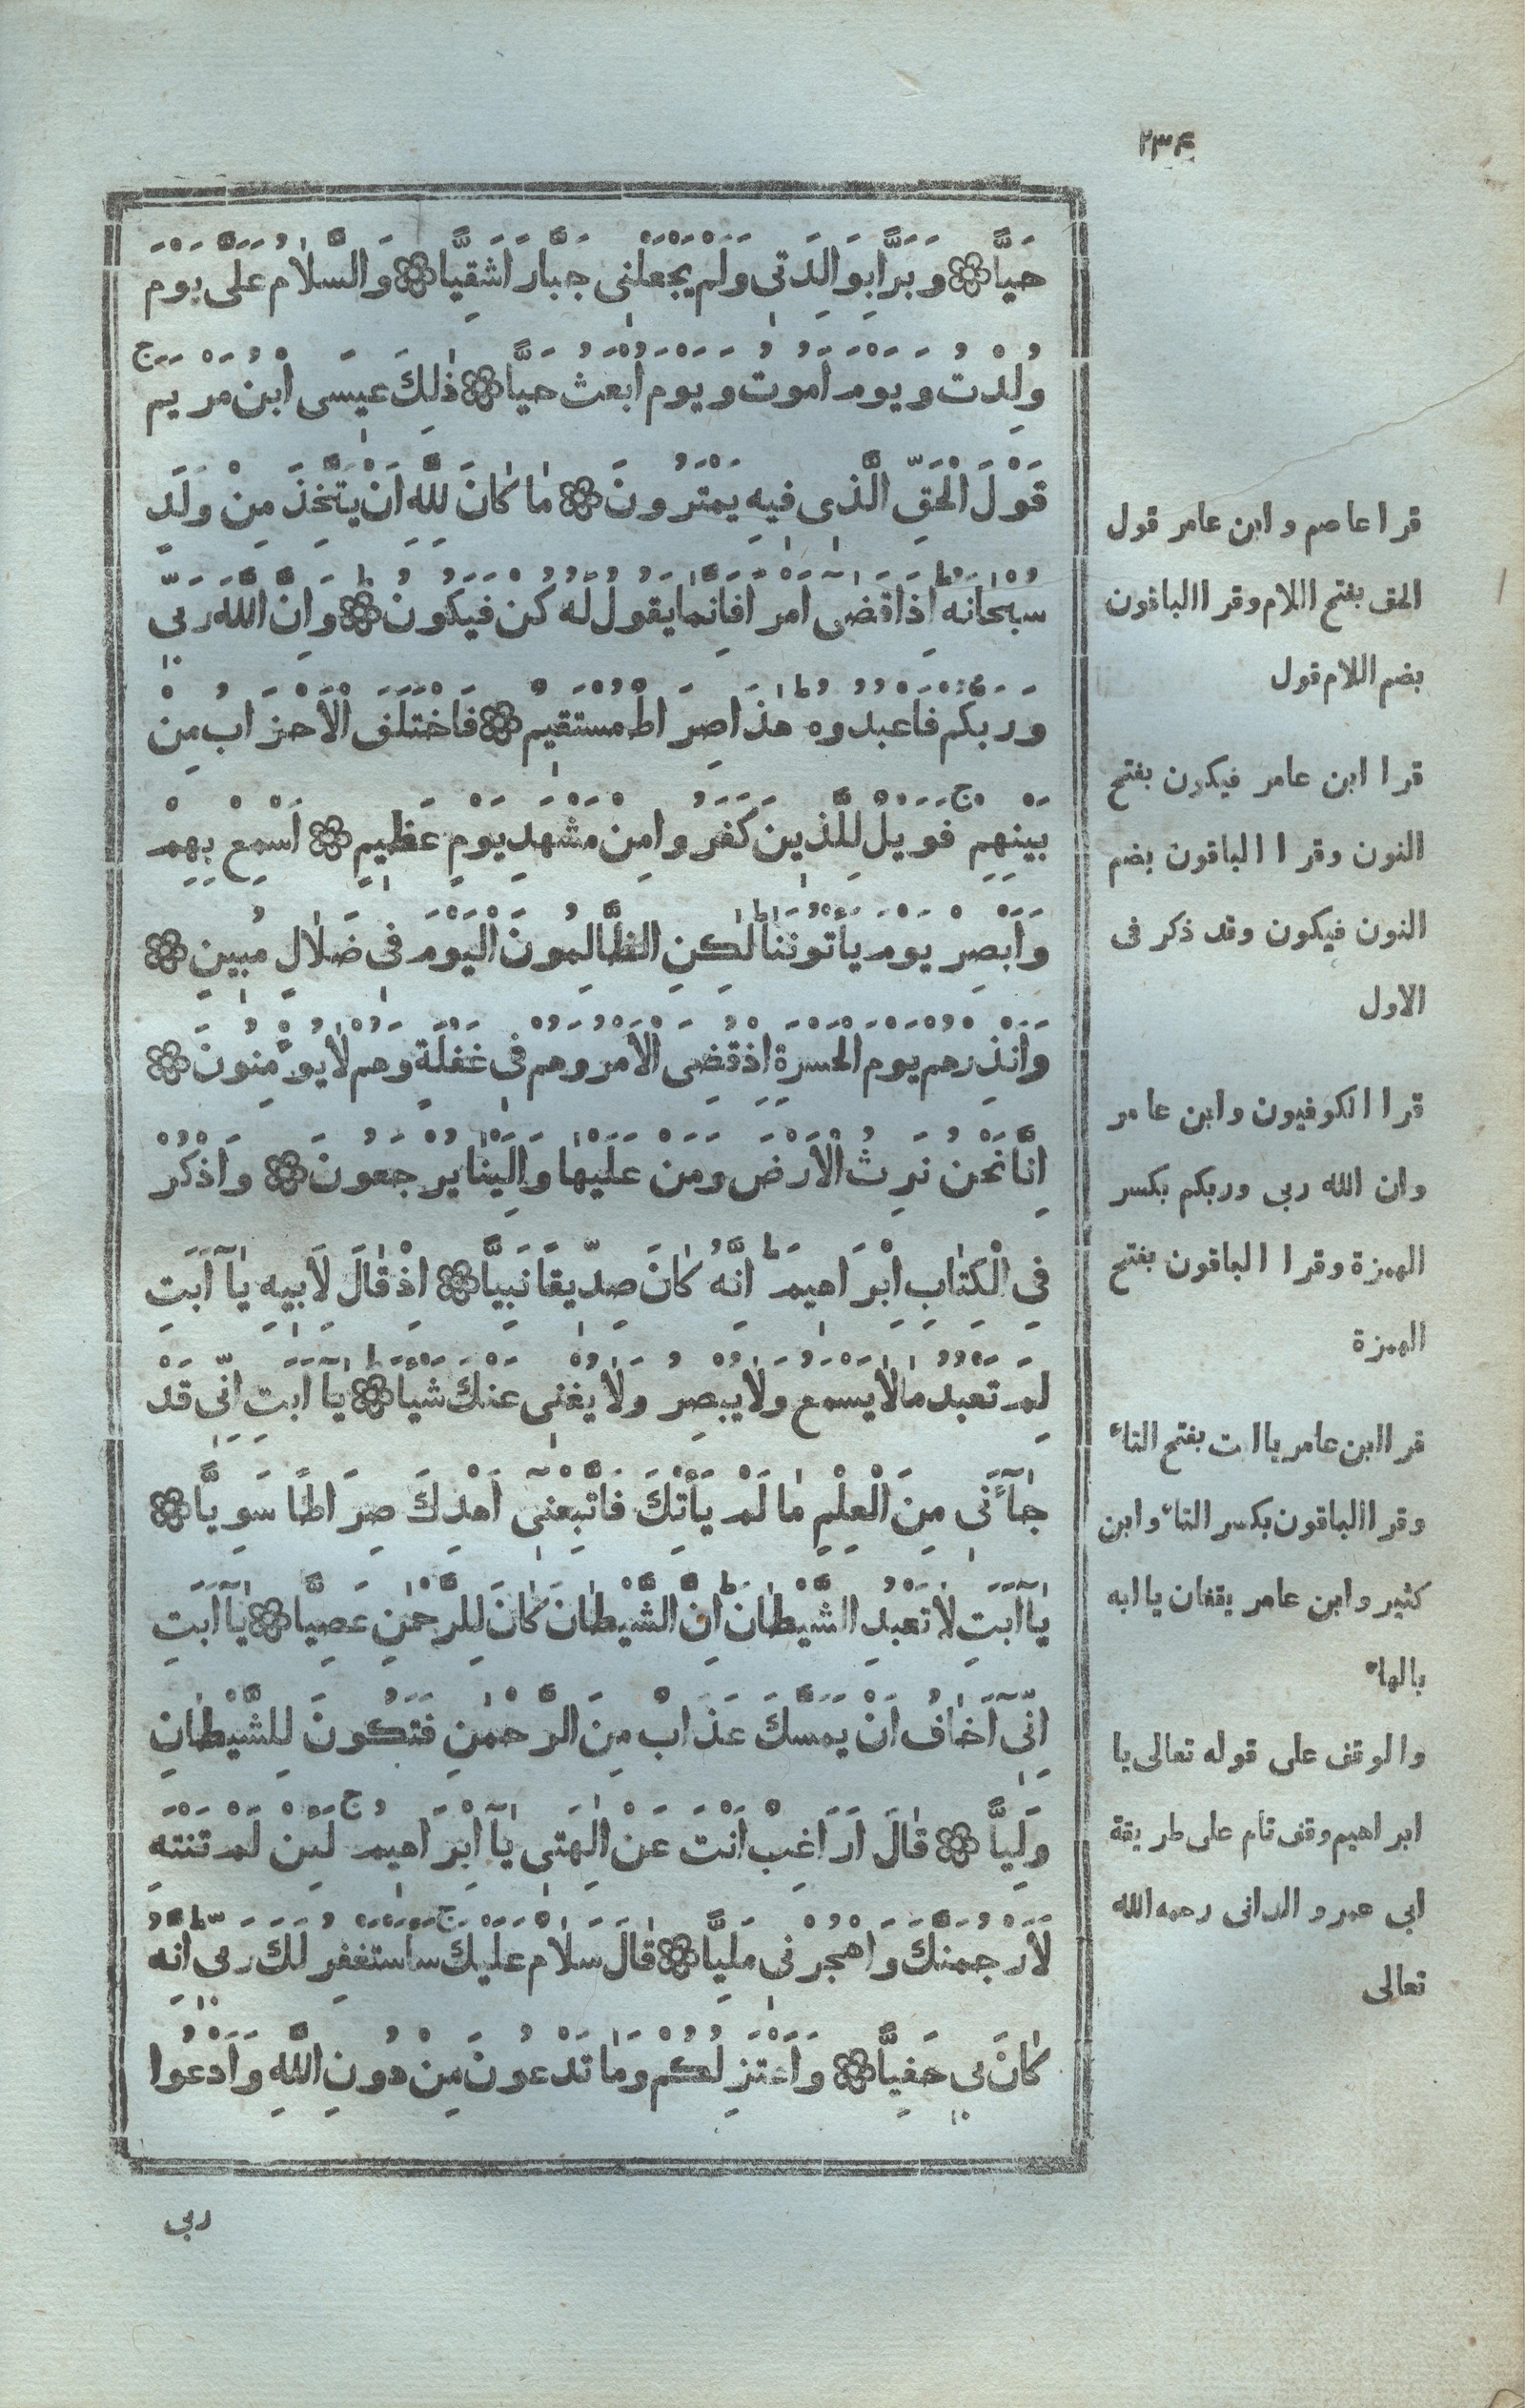 ٢٣۴
حَيًّا ۞ وَبَرًّا بِوَالِدَتِى وَلَمْ يَجْعَلْنِى جَبَّارًا شَقِيًّا ۞ وَالسَّلَامُ عَلَىَّ يَوْمَ
وُلِدْتُ وَيَوْمَ أَمُوتُ وَيَوْمَ أُبْعَثُ حَيًّا ۞ ذٰلِكَ عِيسَى ابْنُ مَرْيَمَ ج
قَوْلَ الْحَقِّ الَّذِى فِيهِ يَمْتَرُونَ ۞ مَا كَانَ لِلَّهِ اَنْ يَتَّخِذَ مِنْ وَلَدٍ
سُبْحَانَهُ ط اِذَا قَضٰى اَمْرًا فَاِنَّمَا يَقُولُ لَهُ كُنْ فَيَكُونُ ط ۞ وَاِنَّ اللّٰهَ رَبِّى
وَرَبُّكُمْ فَاعْبُدُوهُ ط هٰذَا صِرَاطٌ مُسْتَقِيمٌ ۞ فَاخْتَلَفَ الْاَحْزَابُ مِنْ
بَيْنِهِمْ ج فَوَيْلٌ لِلَّذِينَ كَفَرُوا مِنْ مَشْهَدِ يَوْمٍ عَظِيمٍ ۞ اَسْمِعْ بِهِمْ
وَاَبْصِرْ يَوْمَ يَأْتُونَنَا ط لٰكِنِ الظَّالِمُونَ الْيَوْمَ فِى ضَلَالٍ مُبِينٍ ۞
وَاَنْذِرْهُمْ يَوْمَ الْحَسْرَةِ اِذْ قُضِىَ الْاَمْرُ وَهُمْ فِى غَفْلَةٍ وَهُمْ لَا يُؤْمِنُونَ ۞
اِنَّا نَحْنُ نَرِثُ الْاَرْضَ وَمَنْ عَلَيْهَا وَاِلَيْنَا يُرْجَعُونَ ۞ وَاذْكُرْ
فِى الْكِتَابِ اِبْرَاهِيمَ ط اِنَّهُ كَانَ صِدِّيقًا نَبِيًّا ۞ اِذْ قَالَ لِاَبِيهِ يَا اَبَتِ
لِمَ تَعْبُدُ مَا لَا يَسْمَعُ وَلَا يُبْصِرُ وَلَا يُغْنِى عَنْكَ شَيْأً ط ۞ يَا اَبَتِ اِنِّى قَدْ
جَآءَنِى مِنَ الْعِلْمِ مَا لَمْ يَأْتِكَ فَاتَّبِعْنِى اَهْدِكَ صِرَاطًا سَوِيًّا ۞
يَا اَبَتِ لَا تَعْبُدِ الشَّيْطَانَ ط اِنَّ الشَّيْطَانَ كَانَ لِلرَّحْمٰنِ عَصِيًّا ۞ يَا اَبَتِ
اِنِّى اَخَافُ اَنْ يَمَسَّكَ عَذَابٌ مِنَ الرَّحْمٰنِ فَتَكُونَ لِلشَّيْطَانِ
وَلِيًّا ۞ قَالَ اَرَاغِبٌ اَنْتَ عَنْ اٰلِهَتِى يَا اِبْرَاهِيمُ ج لَئِنْ لَمْ تَنْتَهِ
لَاَرْجُمَنَّكَ وَاهْجُرْنِى مَلِيًّا ۞ قَالَ سَلَامٌ عَلَيْكَ ج سَاَسْتَغْفِرُ لَكَ رَبِّى ط اِنَّهُ
كَانَ بِى حَفِيًّا ۞ وَاَعْتَزِلُكُمْ وَمَا تَدْعُونَ مِنْ دُونِ اللّٰهِ وَاَدْعُوا
ربى
قرا عاصم وابن عامر قول
الحق بفتح اللام وقرا الباقون
بضم اللام قول
قرا ابن عامر فيكون بفتح
النون وقرا الباقون بضم
النون فيكون وقد ذكر فى
الاول
قرا الكوفيون وابن عامر
وان الله ربى وربكم بكسر
الهمزة وقرا الباقون بفتح
الهمزة
قرا ابن عامر يا ابت بفتح التاء
وقرا الباقون بكسر التاء وابن
كثير وابن عامر يقفان يا ابه
بالهاء
والوقف على قوله تعالى يا
ابراهيم وقف تام على طريقة
ابى عمرو الدانى رحمه الله
تعالى